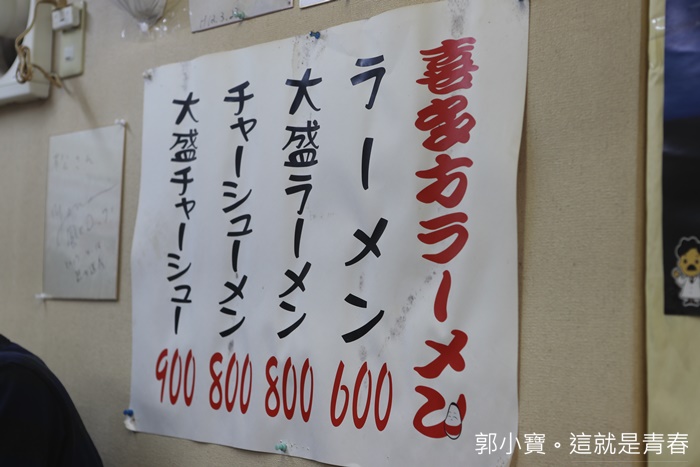 喜多方ラーメン
ラーメン 600
大盛ラーメン 800
チャーシューメン 800
大盛チャーシュー 900
郭小寶。這就是青春